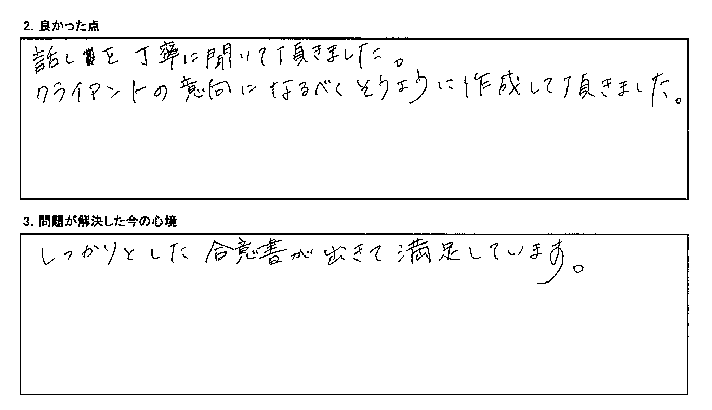 2. 良かった点
話しを丁寧に聞いて頂きました。
クライアントの意向になるべくそうように作成して頂きました。
3. 問題が解決した今の心境
しっかりとした合意書が出きて満足しています。